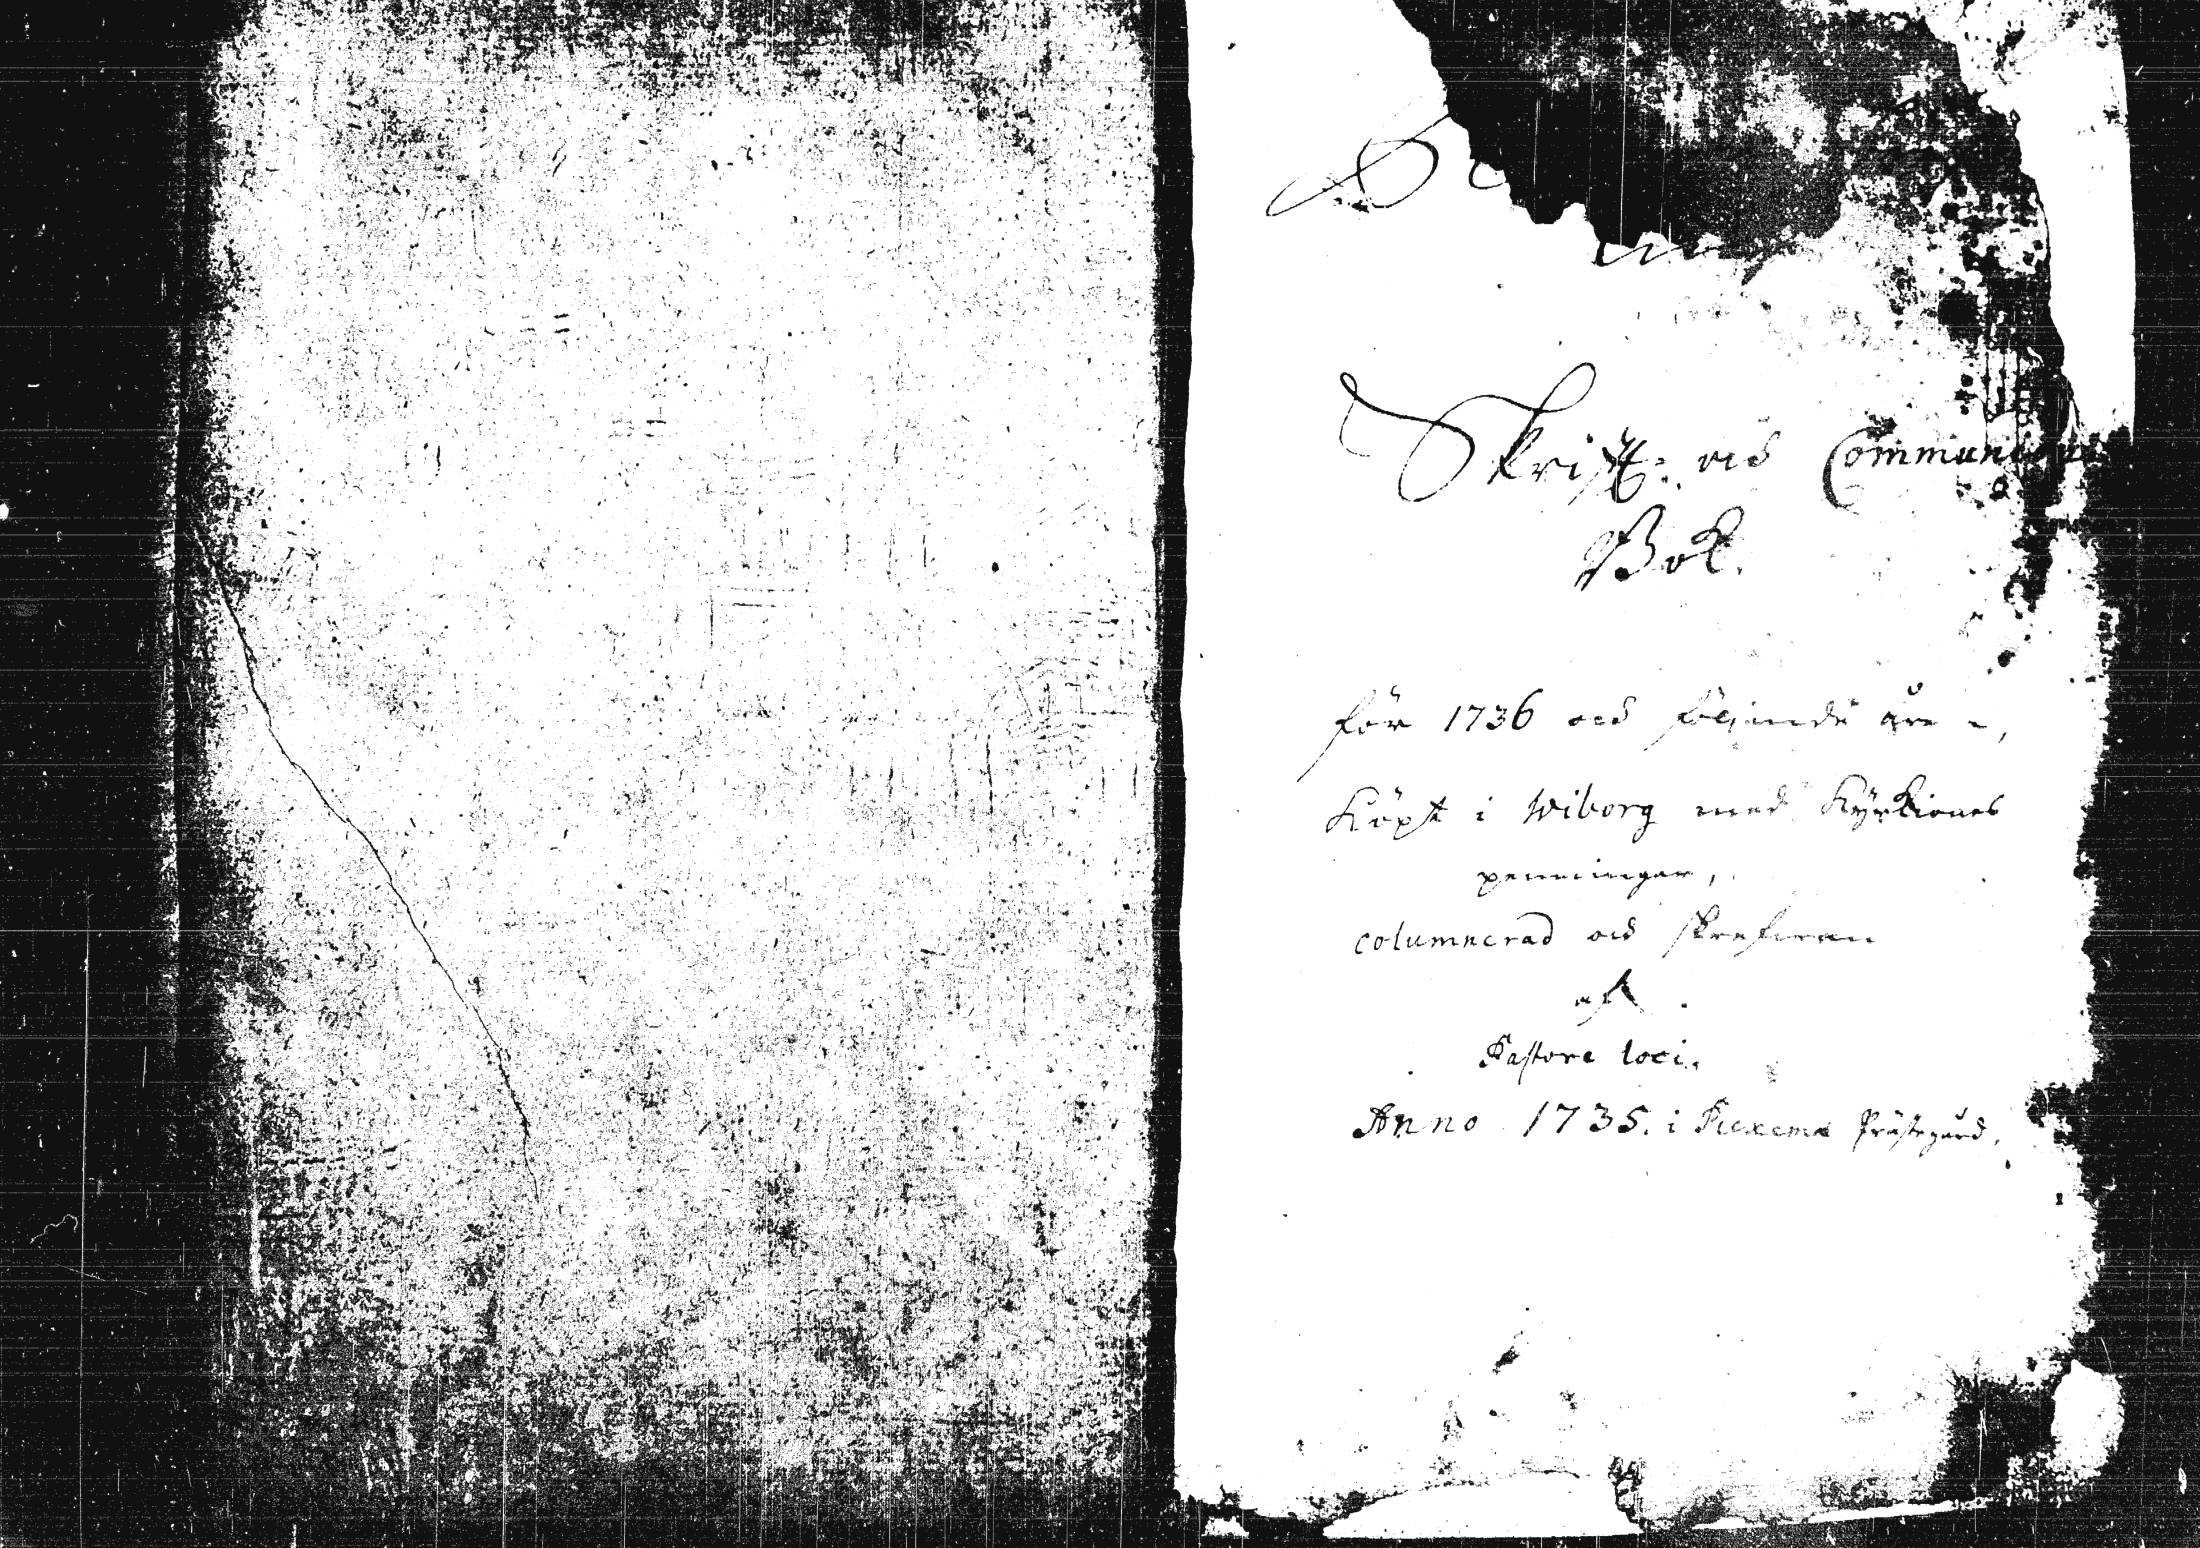 Skrift: och Communion
Bok.
för 1736 och följande åren,
Köpt i Wiborg med Kyrkiones
penningar,
columnerad och skrefwen
af
Pastore loci.
Anno 1735. i Piexemä Prästegård,